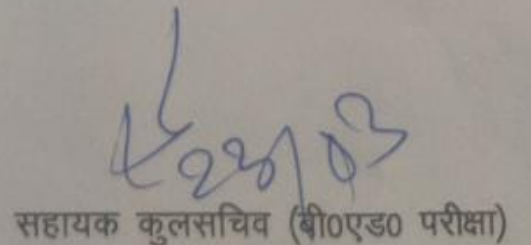 सहायक कुलसचिव (बी०एड० परीक्षा)